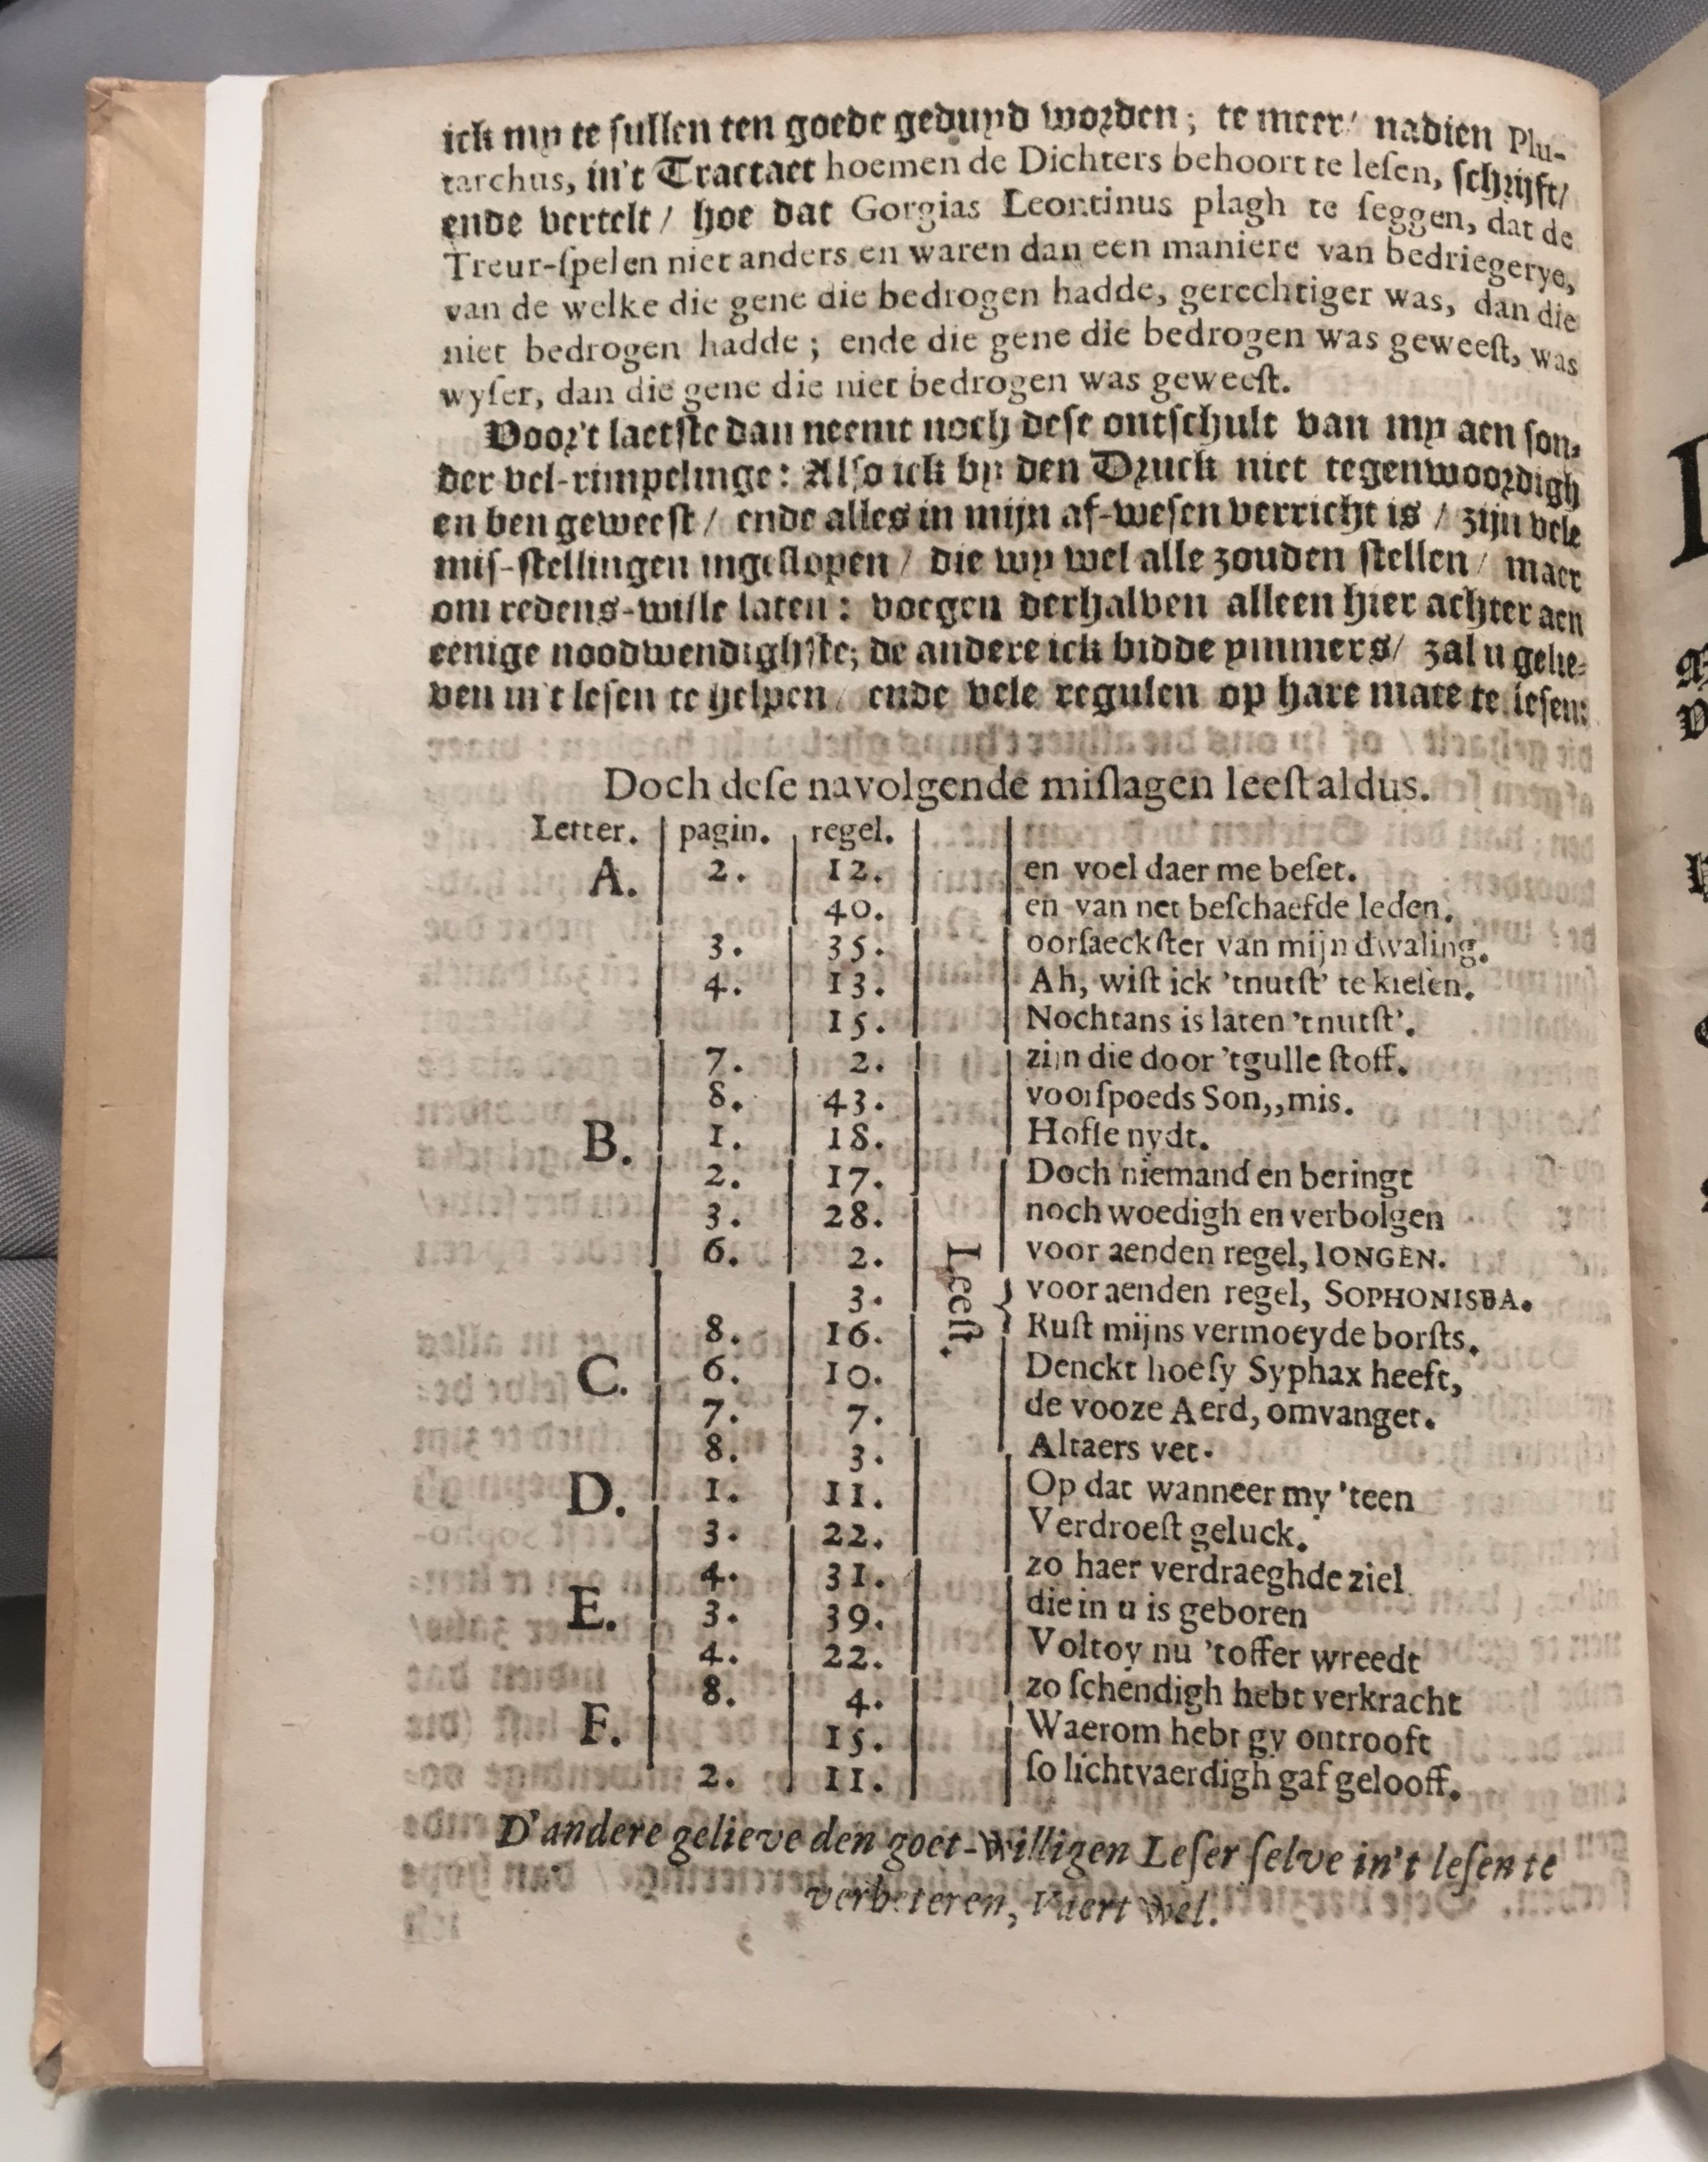 ick my te sullen ten goede geduyd worden; te meer/ nadien Plu-
tarchus, in't Tractaet hoemen de Dichters behoort te leſen, schrijft/
ende vertelt/ hoe dat Gorgias Leontinus plagh te ſeggen, dat de
Treur-ſpelen niet anders en waren dan een maniere van bedriegerye,
van de welke die gene die bedrogen hadde, gerechtiger was, dan die
niet bedrogen hadde; ende die gene die bedrogen was geweeſt, was
wyſer, dan die gene die niet bedrogen was geweeſt.
Voor't laetste dan neemt noch dese ontschult van my aen son-
der vel-rimpelinge: Also ick by den Druck niet tegenwoordigh
en ben geweest/ ende alles in mijn af-wesen verricht is/ zijn vele
mis-stellingen ingeslopen/ die wy wel alle zouden stellen/ maer
om redens-wille laten: voegen derhalven alleen hier achter aen
eenige noodwendighste; de andere ick bidde ymmers/ zal u gelie-
ven in't lesen te helpen/ ende vele regulen op hare mate te lesen:
Doch deſe navolgende miſlagen leeſt aldus.
Letter. | pagin. | regel.
A. 2. 12. en voel daer me beſet.
40. en van net beſchaefde leden.
3. 35. oorſaeckſter van mijn dwaling.
4. 13. Ah, wiſt ick 'tnutſt' te kieſen.
15. Nochtans is laten 'tnutſt'.
7. 2. zijn die door 'tgulle ſtoff.
8. 43. voorſpoeds Son,,mis.
B. 1. 18. Hofſe nydt.
2. 17. Doch niemand en beringt
3. 28. noch woedigh en verbolgen
6. 2. voor aenden regel, IONGEN.
Leeſt.
3. voor aenden regel, SOPHONISBA.
8. 16. Ruſt mijns vermoeyde borſts.
C. 6. 10. Denckt hoeſy Syphax heeft,
7. 7. de vooze Aerd, omvanget.
8. 3. Altaers vet.
D. 1. 11. Op dat wanneer my 'teen
3. 22. Verdroeſt geluck.
4. 31. zo haer verdraeghde ziel
E. 3. 39. die in u is geboren
4. 22. Voltoy nu 'toffer wreedt
8. 4. zo ſchendigh hebt verkracht
F. 15. Waerom hebt gy ontrooft
2. 11. ſo lichtvaerdigh gaf gelooff.
D'andere gelieve den goet-willigen Leſer ſelve in't leſen te
verbeteren, Vaert wel.